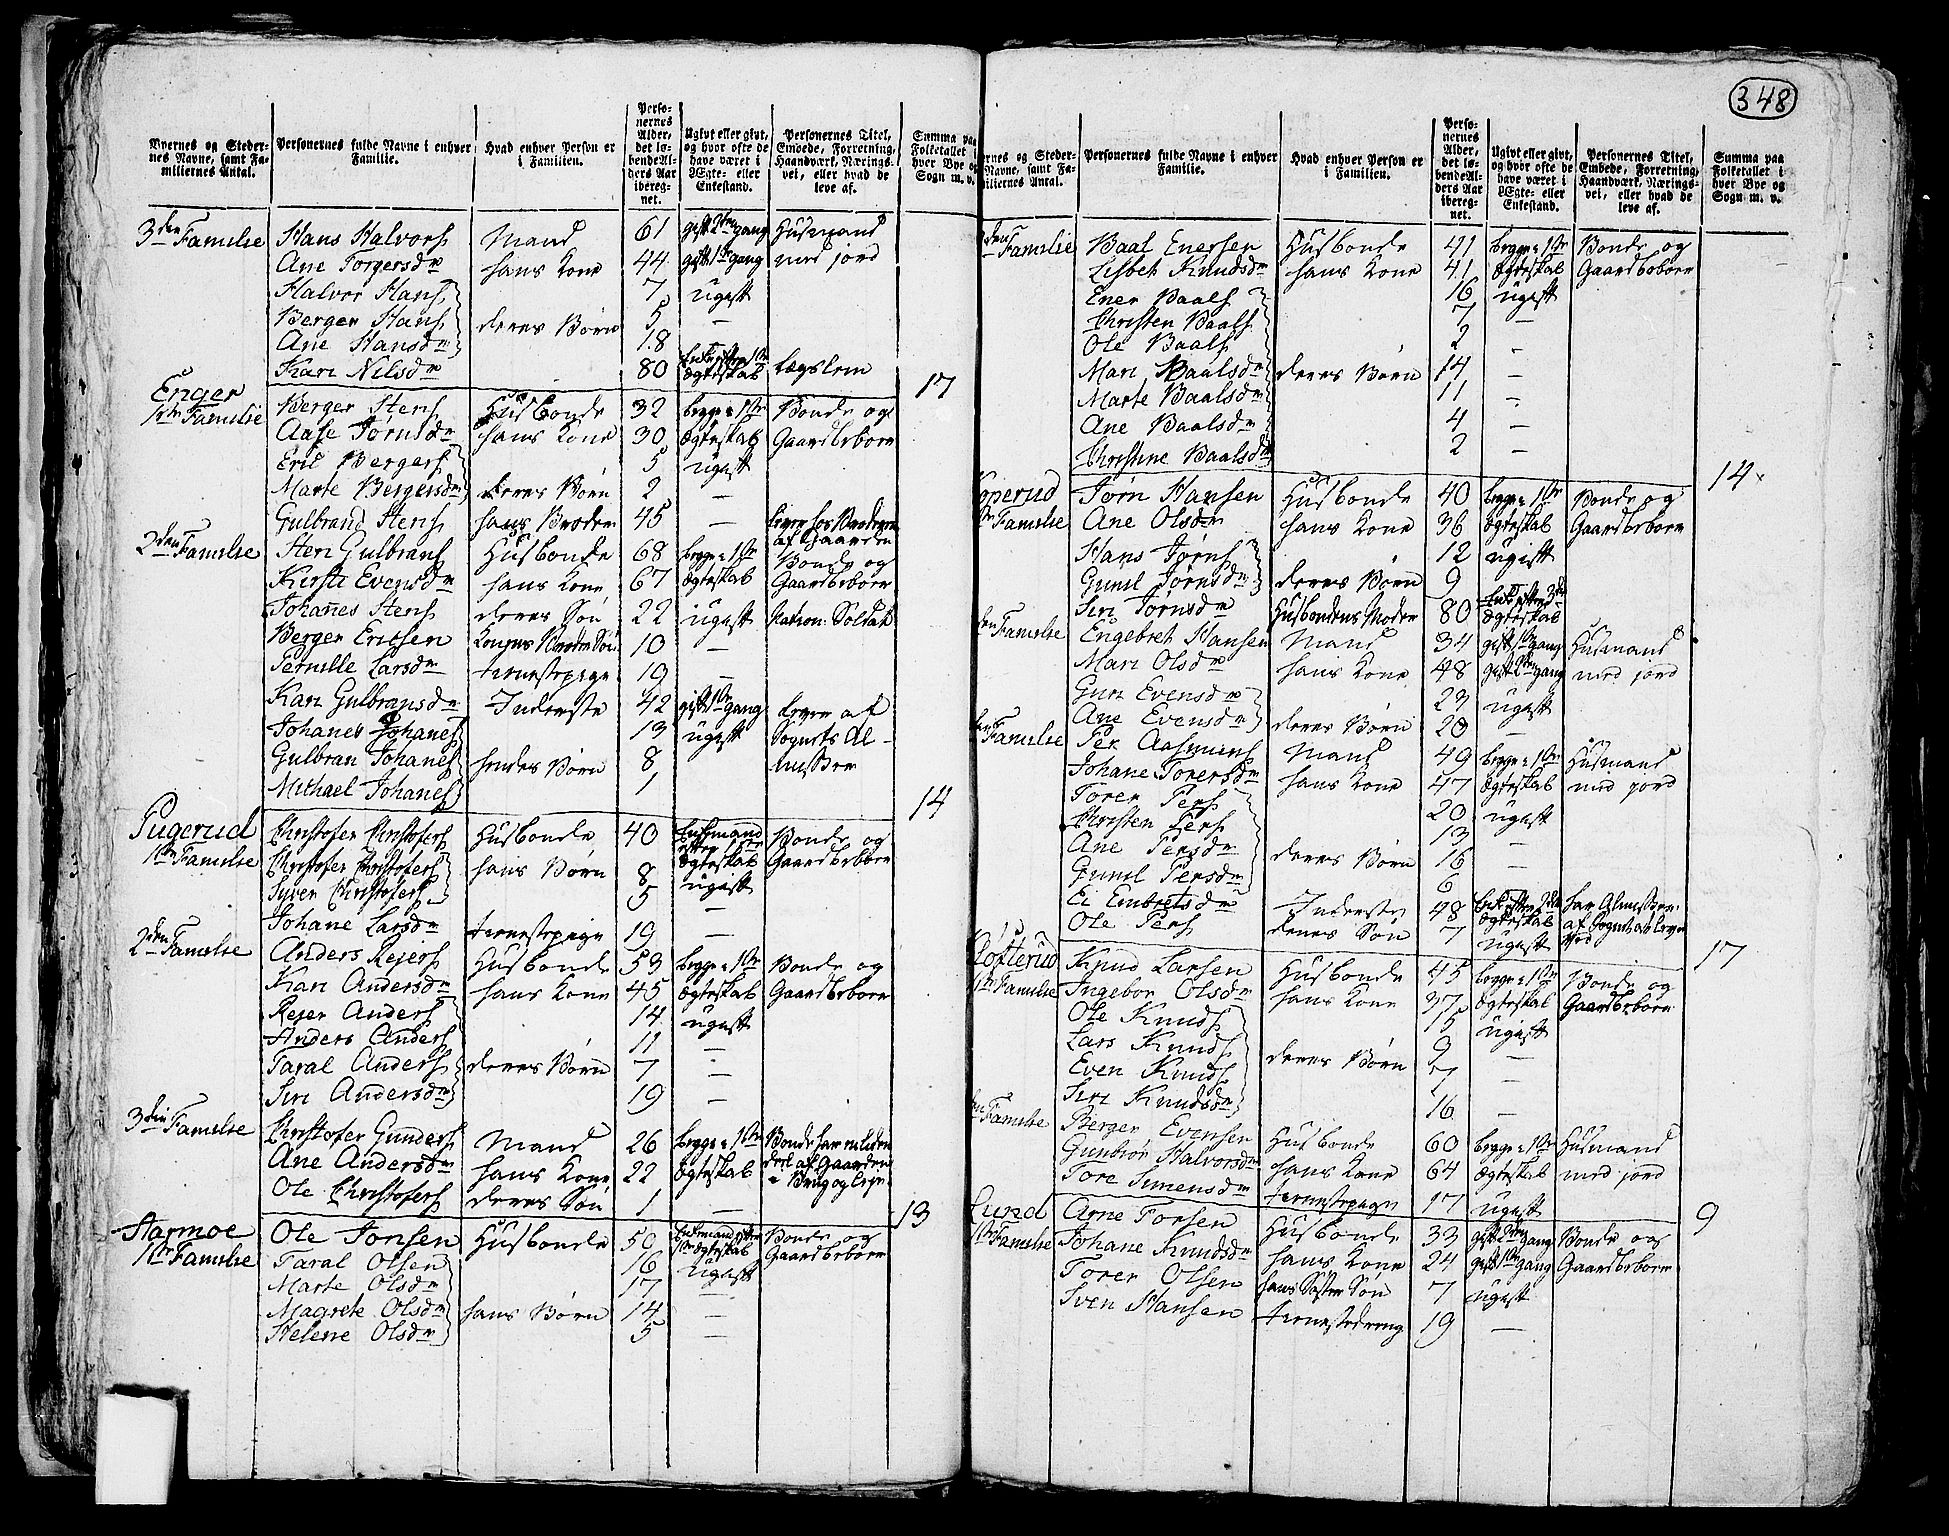 348
Byernes og Steder-
nes Navne, samt Fa-
miliernes Antal.
Personernes fulde Navne i enhver
Familie.
Hvad enhver Person er
i Familien.
Perso-
nernes
Alder,
det lø-
bende Al-
ders Aar
ibereg-
net.
Ugivt eller givt,
og hvor ofte de
have været i
Ægte- eller
Enkestand.
Personernes Titel,
Embede, Forretning,
Haandværk, Nærings-
vei, eller hvad de
leve af.
Summa paa
Folketallet i
hver Bye og
Sogn m. v.
3den Familie Hans Halvors. Mand 61 gift 2den gang Husmand
Ane Torgersdr hans Kone 44 gift 1te gang med jord
Halvor Hans. 7 ugift
Berger Hans. deres Børn 5 —
Ane Hansdr 18
Kari Nilsdr 80 Enke efter 1te Ægteskab Lægslem
17
Enger
1te Familie Berger Stens. Husbonde 32 begge i 1te Bonde og
Aase Jørnsdr hans Kone 30 Ægteskab Gaardbeboere
Eril Bergers. 5 ugift
Marte Bergersdr deres Børn 2 —
Gulbrand Stens. hans Broder 45 — lever hos Broderen af Gaarden
2den Familie Sten Gulbrans. Husbonde 68 begge i 1te Bonde og
Kirsti Evensdr hans Kone 67 Ægteskab Gaardbeboere
Johanes Stens. deres Søn 22 ugift Nation: Soldat
Berger Ericsen Konens Broder Søn 10 —
Pernille Larsdr tienestepige 19 —
Kari Gulbransdr Inderste 42 gift 1te gang lever af
Johanes Johanes. 13 ugift Sognets Al-
Gulbran Johanes. hendes Børn 8 misser
Michael Johanes. 1
14
Pugerud
1te Familie Christofer Christofers. Husbonde 40 Enkemand efter 1te Ægteskab Bonde og Gaardbeboere
Christofer Christofers. hans Børn 8 ugift
Syver Christofers. 5 —
Johane Larsdr tienestepige 19 —
2den Familie Anders Rejers. Husbonde 53 begge i 1te Bonde og
Kari Andersdr hans Kone 45 Ægteskab Gaardbeboere
Rejer Anders. 14 ugift
Anders Anders. 11 —
Taral Anders. deres Børn 7 —
Siri Andersdr 19 —
3die Familie Christofer Gunders. Mand 26 begge i 1te
Ane Andersdr hans Kone 22 Ægteskab
Ole Christofers. deres Søn 1 —
13
Starmoe
1te Familie Ole Jonsen Husbonde 50 Enkemand efter 1te Ægteskab Bonde og Gaardbeboere
Taral Olsen 16 ugift
Marte Olsdr 17 —
Magrete Olsdr hans Børn 14 —
Helene Olsdr 5 —
ernes og Steder-
Navne, samt Fa-
iliernes Antal.
Personernes fulde Navne i enhver
Familie.
Hvad enhver Person er
i Familien.
Perso-
nernes
Alder,
det lø-
bende Al-
ders Aar
ibereg-
net.
Ugivt eller givt,
og hvor ofte de
have været i
Ægte- eller
Enkestand.
Personernes Titel,
Embede, Forretning,
Haandværk, Nærings-
vei, eller hvad de
leve af.
Summa paa
Folketallet i
hver Bye og
Sogn m. v.
den Familie Baal Enersen Husbonde 41 begge i 1te Bonde og
Lisbeh Knudsdr hans Kone 41 Ægteskab Gaardbeboere
Ener Baals. 16 ugift
Christen Baals. 7 —
Ole Baals. 2 —
Mari Baalsdr deres Børn 14 —
Marte Baalsdr 11 —
Ane Baalsdr 4 —
Christine Baalsdr 2 —
14
operud
Familie Jørn Hansen Husbonde 40 begge i 1te Bonde og
Ane Olsdr hans Kone 36 Ægteskab Gaardbeboere
Hans Jørns. 12 ugift
Gunil Jørnsdr deres Børn 9
Siri Jørnsdr Husbondens Moder 80 Enke efter 3die Ægteskab
den Familie Engebret Hansen Mand 34 gift 1te gang Husmand
Mari Olsdr hans Kone 48 gift 2den gang med jord
Guri Evensdr 23 ugift
Ane Evensdr deres Børn 20 —
Familie Per Aasmuns. Mand 49 begge i 1te Husmand
Johane Torersdr hans Kone 47 Ægteskab med jord
Torer Pers. 20 ugift
Christen Pers. 13 —
Ane Persdr deres Børn 16 —
Gunil Persdr 6
Ei Embretsdr Inderste 48 Enke efter 2den Ægteskab har Almisser af Sognet at leve ved
Ole Pers. denes Søn 7 ugift
17
Kofterud
1te Familie Knud Larsen Husbonde 45 begge i 1te Bonde og
Ingebor Olsdr hans Kone 37 Ægteskab Gaardbeboere
Ole Knuds. 15 ugift
Lars Knuds. 9 —
Even Knuds. deres Børn 7 —
Siri Knudsdr 16 —
Familie Berger Evensen Husbonde 60 begge i 1te Husmand
Gunbiør Halvorsdr hans Kone 64 Ægteskab med jord
Tore Simensdr tienestepige 17 ugift
9
Lund
1te Familie Arne Torsen Husbonde 33 gift 2den gang Bonde og
Johane Knudsdr hans Kone 24 gift 1te gang Gaardbeboere
Torer Olsen hans Søster Søn 7 ugift
Sven Hansen tienestedreng 19 —